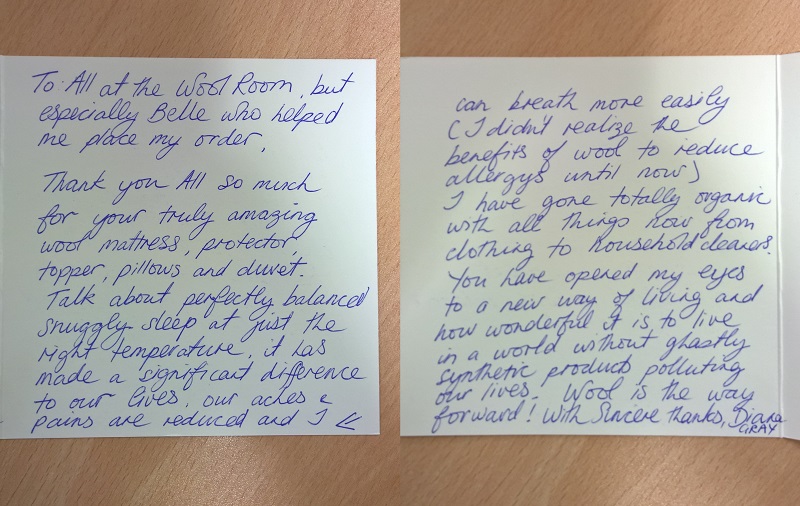 To: All at the Wool Room, but
especially Belle who helped
me place my order.
Thank you All so much
for your truly amazing
wool mattress, protector,
topper, pillows and duvet.
Talk about perfectly balanced
snuggly sleep at just the
right temperature, it has
made a significant difference
to our lives, our aches &
pains are reduced and I
can breath more easily
(I didn't realize the
benefits of wool to reduce
allergys until now)
I have gone totally organic
with all things now from
clothing to household cleaners.
You have opened my eyes
to a new way of living and
how wonderful it is to live
in a world without ghastly
synthetic products polluting
our lives. Wool is the way
forward! With Sincere thanks, Diana
GRAY